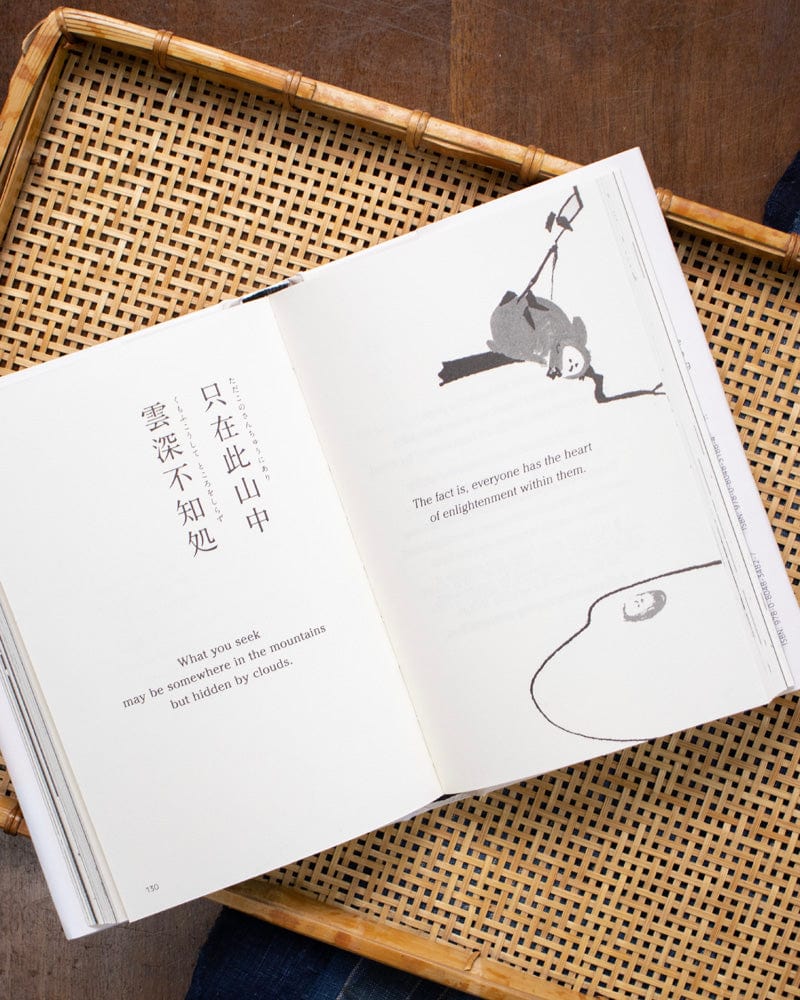 只在此山中
ただこのさんちゅうにあり
雲深不知処
くもふこうしてところをしらず
What you seek
may be somewhere in the mountains
but hidden by clouds.
130
The fact is, everyone has the heart
of enlightenment within them.